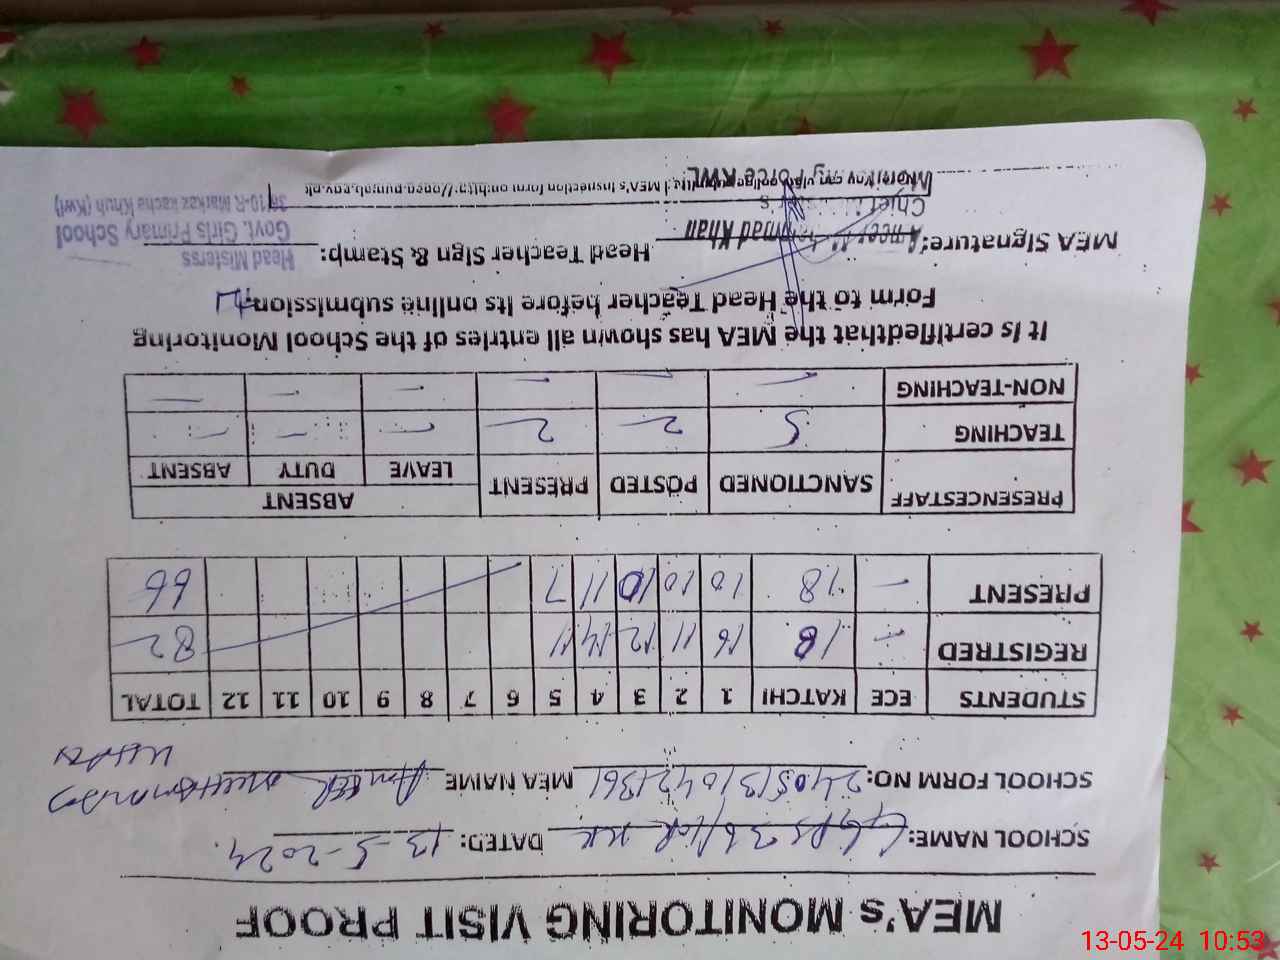 MEA's MONITORING VISIT PROOF
SCHOOL NAME: GGPS 36/10R KK DATED: 13-5-2024.
SCHOOL FORM NO: MEA NAME Ameer Muhammad
Khan
STUDENTS ECE KATCHI 1 2 3 4 5 6 7 8 9 10 11 12 TOTAL
REGISTRED - 18 16 11 12 14 11 82
PRESENT - 18 10 10 10 11 7 66
PRESENCESTAFF SANCTIONED POSTED PRESENT ABSENT
LEAVE DUTY ABSENT
TEACHING 5 2 2 - - -
NON-TEACHING - - - - - -
It is certifiedthat the MEA has shown all entries of the School Monitoring
Form to the Head Teacher before its online submission.
MEA Signature: Head Teacher Sign & Stamp:
Ameer Khan
Chief
Force KWL
Head Misterss
Govt. Girls Primary School
36/10-R Markaz kacha Khuh (Kwl)
MEA's Inspection form on:http://open.punjab.gov.pk
13-05-24 10:53